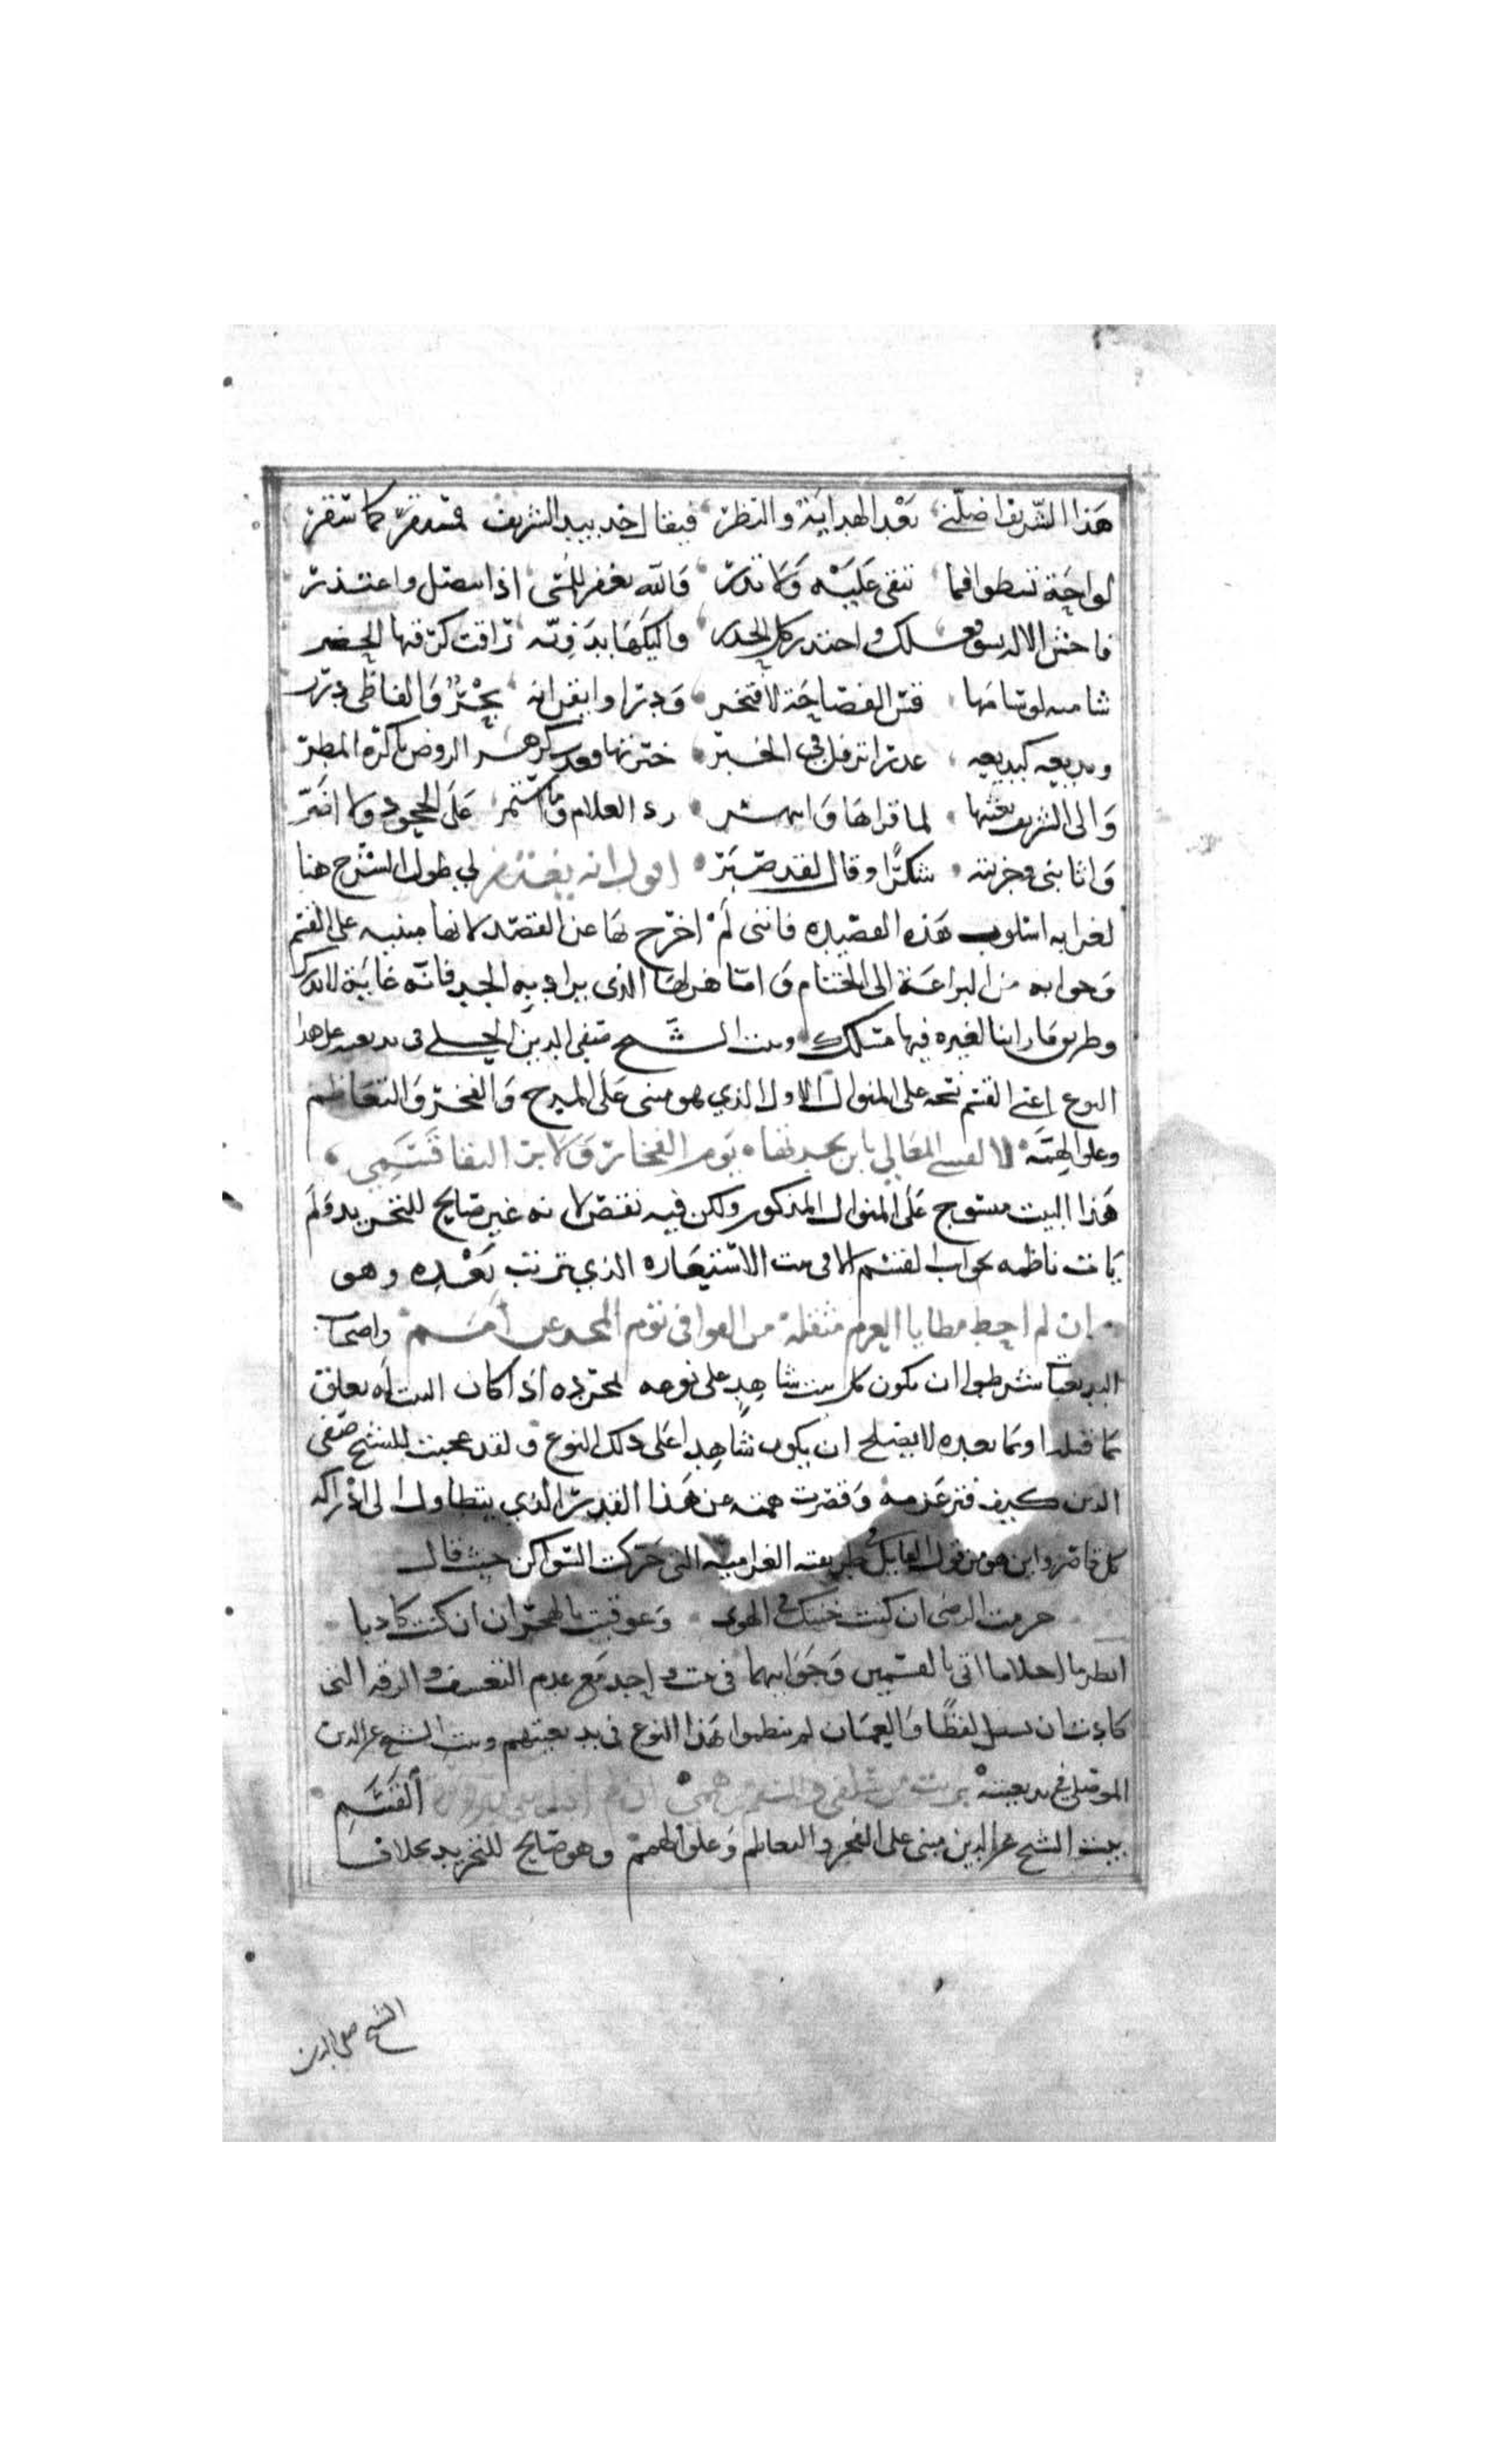 هذا الشريف اضلني بعد الهداية والنظر فيقال خذ بيد الشريف فستقر كما سقر
لواحة تسطو فما تبقي عليه ولا تذر والله يغفر للمسي اذا تنصل واعتذر
فاخش الاله بسوء فعلك واحتذر كل الحذر واليكها بدوية رقت لرقتها الحضر
شامية لو شامها قس الفصاحة لافتخر ودرا وايقن انه بحر والفاظي درر
وبديعة كبديعة عذرا ترفل في الحبر حبرتها فغدت كزهر الروض باكره المطر
والى الشريف بعثتها لما قراها وانبهر رد الغلام وما استمر على الجحود ولا اصر
واثابني وجزيته شكرا وقال لقد صبر اقول انه يغتفر لي طول الشرح هنا
لغرابة اسلوب هذه القصيده فانني لم اخرج بها عن القصد لانها مبنيه على القسم
وجوابه من البراعة الى الختام واما هزلها الذي يراد به الجد فانه غاية لا تدرك
وطريق ما راينا لغيره فيها مسلك وبيت الشيخ صفي الدين الحلي في بديعيته على هذا
النوع اعني القسم نسجه على المنوال الاول الذي هو مبني على المدح والفخر والتعاظم
وعلو الهمة لا لقبتني المعالي بابن بجدتها يوم الفخار ولا بر التقا قسمي
هذا البيت منسوج على المنوال المذكور ولكن فيه نقص لانه غير صالح للتجريد ولم
يات ناظمه بجواب القسم الا في بيت الاستعاره الذي ترتب بعده وهو
ان لم احط مطايا العزم مثقلة من القوافي تؤم المجد عن امم واصحاب
البديعيات شرطوا ان يكون كل بيت شاهد على نوعه بمجرده اذا كان البيت له تعلق
بما قبله او بما بعده لا يصلح ان يكون شاهدا على ذلك النوع ولقد عجبت للشيخ صفي
الدين كيف فتر عزمه وقصرت همته عن هذا القدر الذي يتطاول الى ادراكه
كل قاصر واين هو من قول القايل في طريقته الغراميه التي حركت السواكن حيث قال
حرمت الرضى ان كنت خنتك في الهوى وعوقبت بالهجران ان كنت كاذبا
انظر ما احلا ما اتى بالقسمين وجوابهما في بيت واحد مع عدم التعسف والرقة التي
كادت ان تسيل لفظا والعميان لم ينظموا هذا النوع في بديعيتهم وبيت الشيخ عز الدين
الموصلي في بديعيته برئت من سلفي والشم من هممي ان لم القسم
بيت الشيخ عز الدين مبني على الفخر والتعاظم وعلو الهمم وهو صالح للتجريد بخلاف
الشيخ صفي الدين